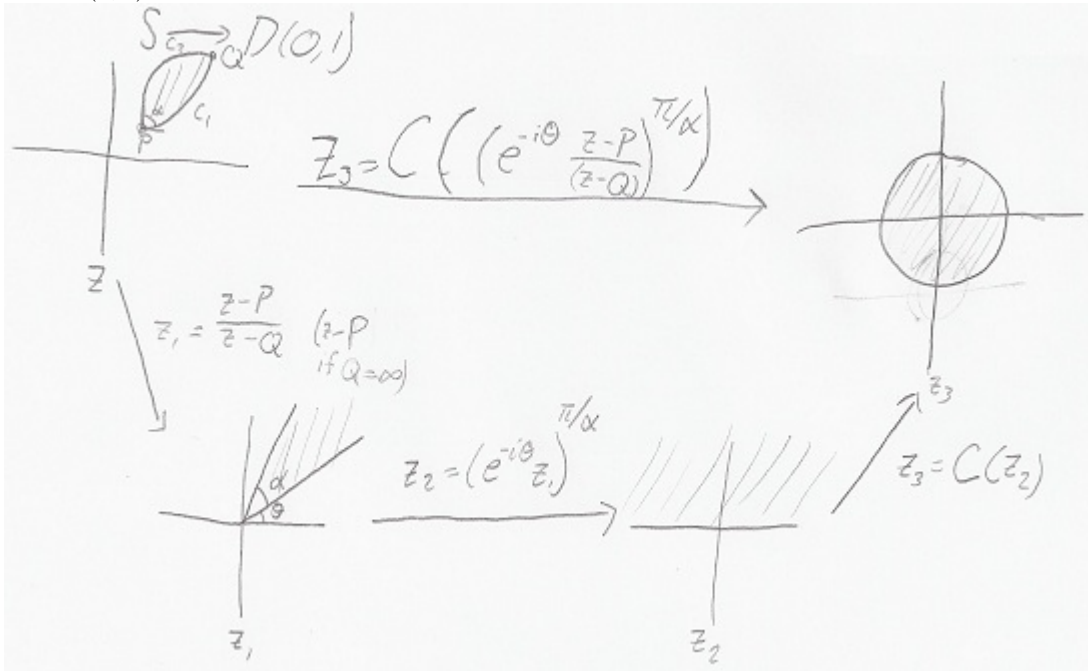 S → D(0,1)
C₂
Q
α
C₁
P
z₃ = C((e^{-iθ} (z-P)/(z-Q))^{π/α})
z
z₁ = (z-P)/(z-Q) (z-P
if Q=∞)
z₃
α
θ
z₂ = (e^{-iθ} z₁)^{π/α}
z₃ = C(z₂)
z₁
z₂